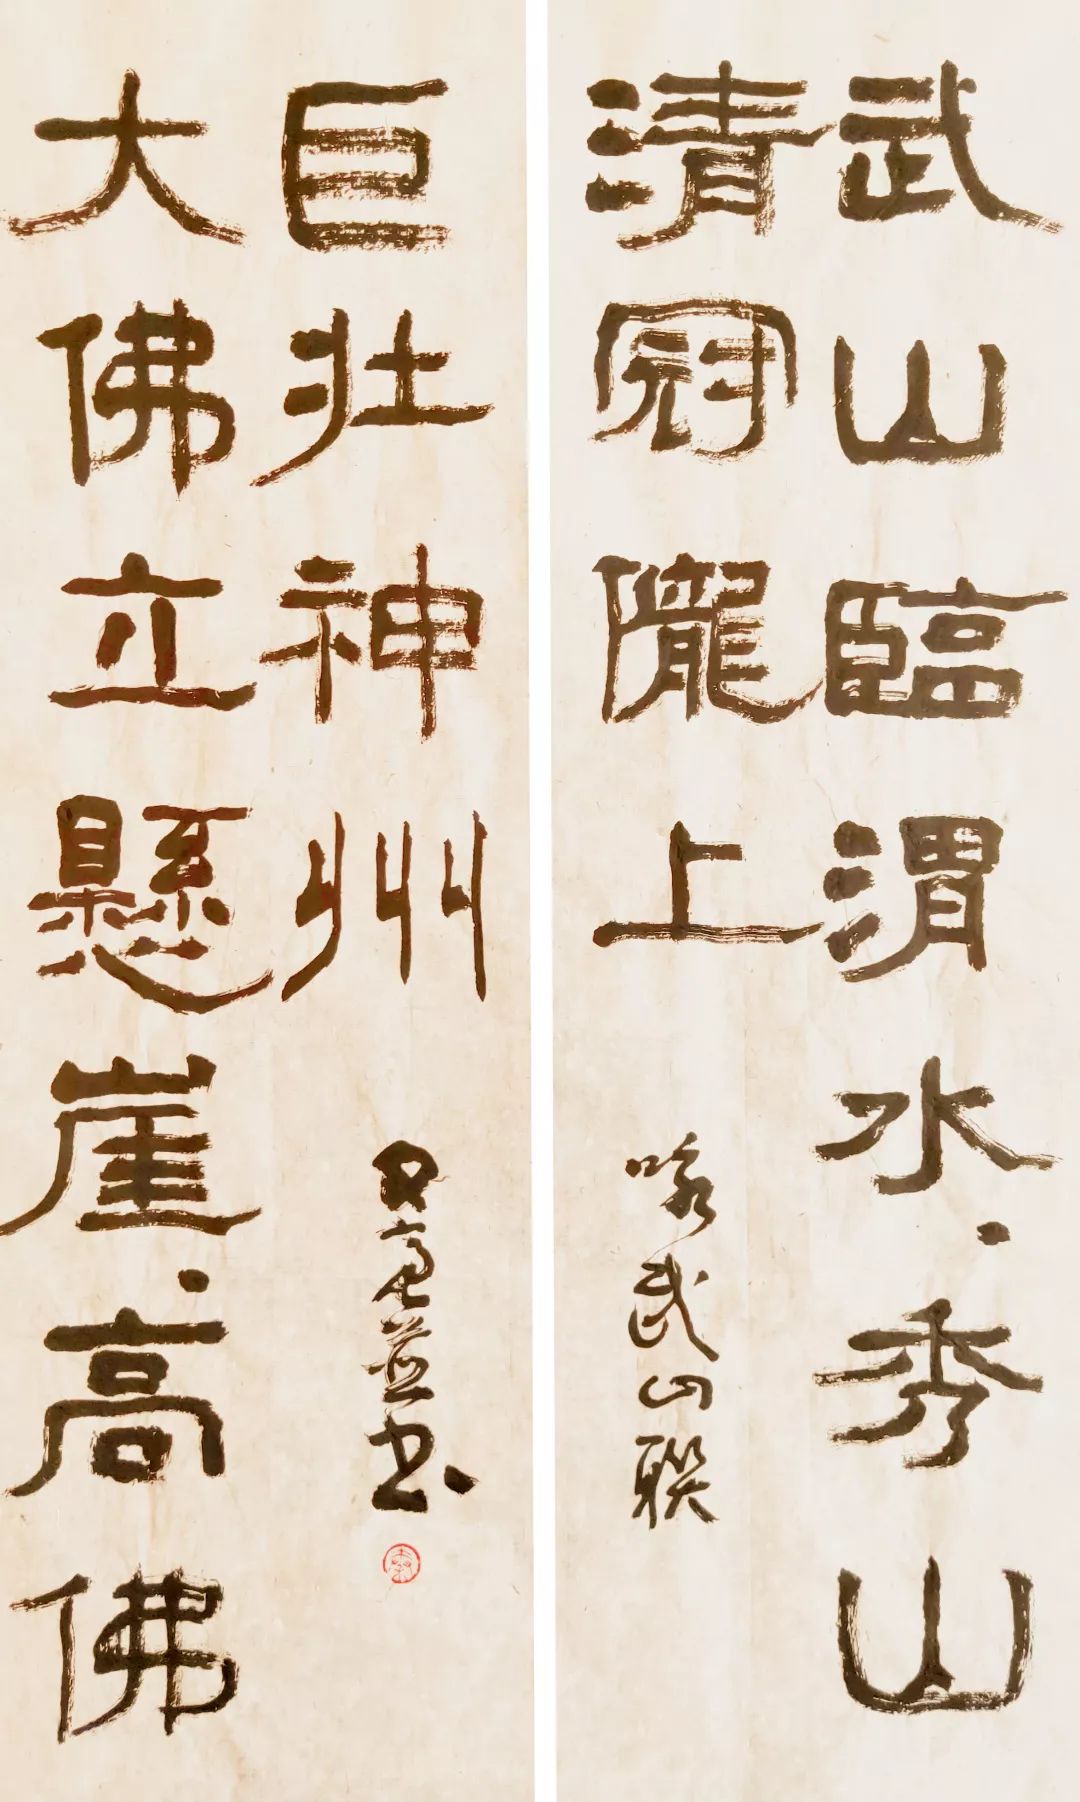 武山臨渭水、秀山
清冠隴上
咏武山聯
大佛立懸崖、高佛
巨壯神州
並书